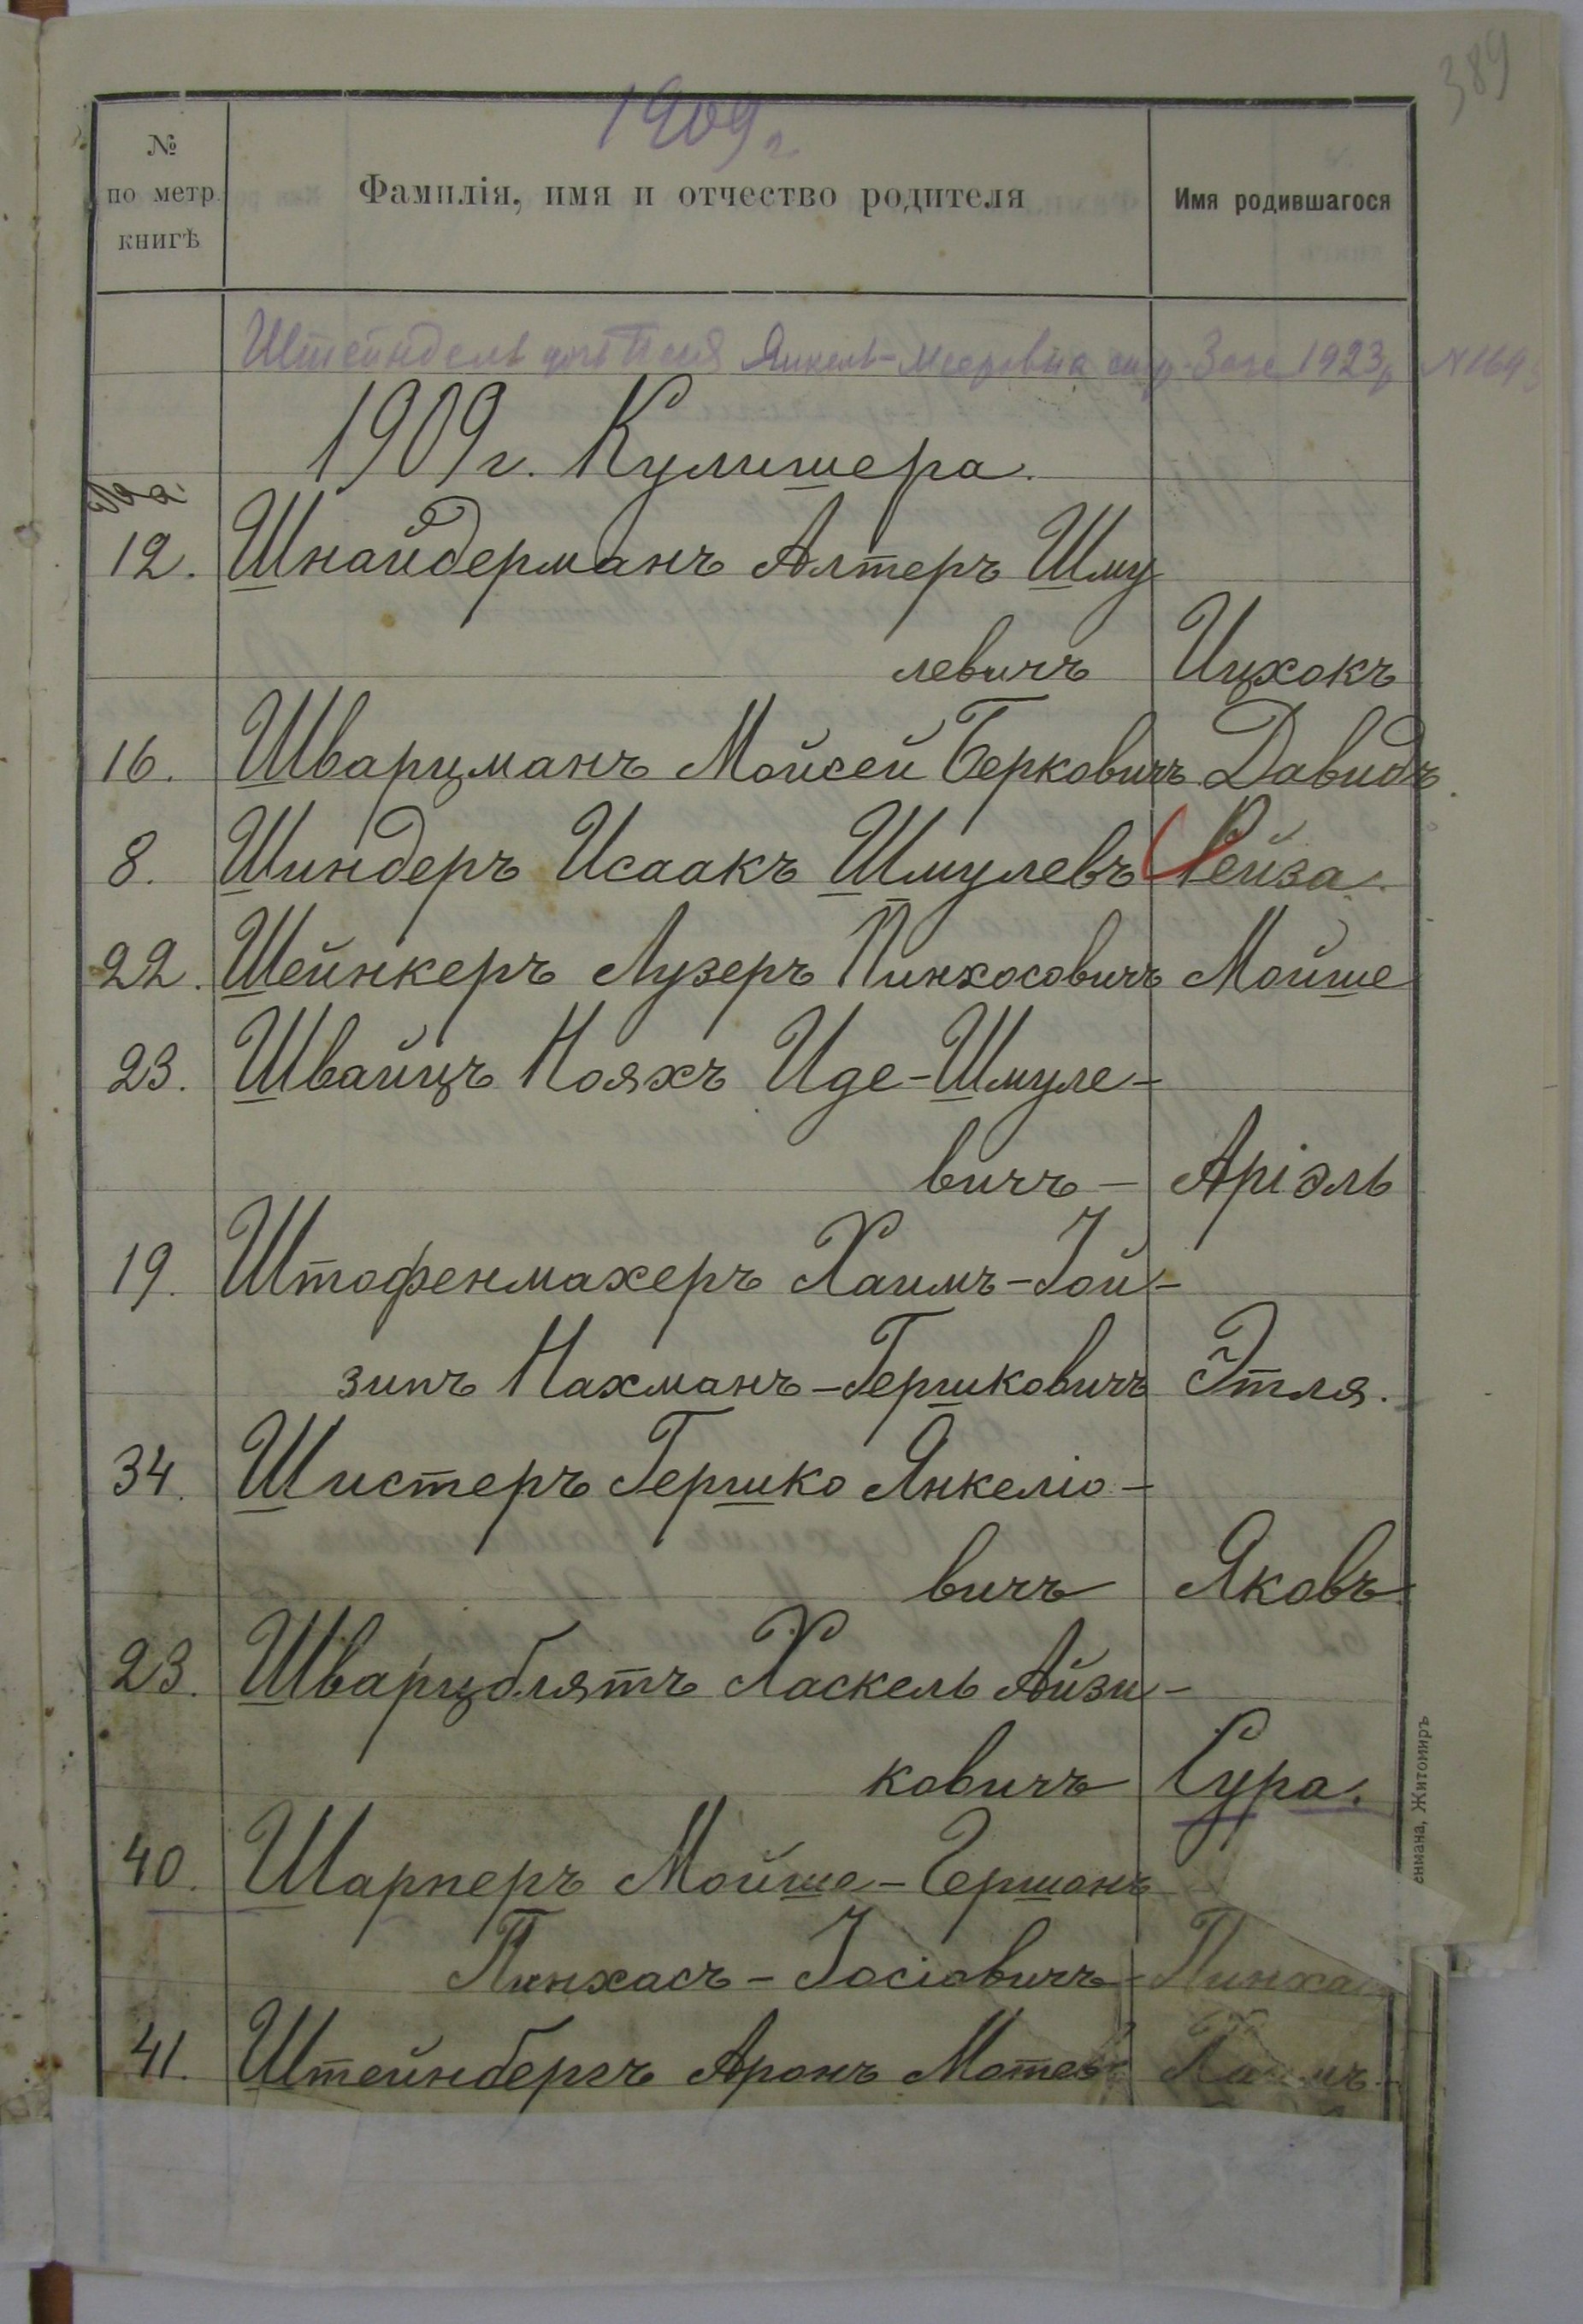 389
1909 г.
№
по метр.
книгѣ
Фамилія, имя и отчество родителя
Имя родившагося
Штейндель Песя Янкель-Мееровна Загс 1923 г №169
1909 г. Кулишера.
12. Шнайдерманъ Алтеръ Шму
левичъ Ицхокъ
16. Шварцманъ Мойсей Берковичъ Давидъ.
8. Шиндеръ Исаакъ Шмулевъ Рейза.
22. Шейнкеръ Лузеръ Пинхосовичъ Мойше
23. Швайцъ Нояхъ Иде-Шмуле-
вичъ - Аріэль
19. Штофенмахеръ Хаимъ-Іой-
зипъ Нахманъ-Гершковичъ Этля.
34. Шистеръ Гершко Янкеліо-
вичъ Яковъ
23. Шварцблятъ Хаскель Айзи-
ковичъ Сура.
40. Шарперъ Мойше-Гершонъ
Пинхасъ-Іосіовичъ- Пинха
41. Штейнбергъ Аронъ Мотев
енмана, Житомиръ